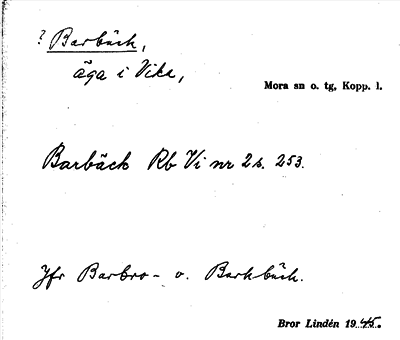 ? Barbäck,
äga i Vika,
Mora sn o. tg, Kopp. l.
Barbäck Rb Vi nr 2 s. 253.
Jfr Barbro- o. Barkbäck.
Bror Lindén 1945.